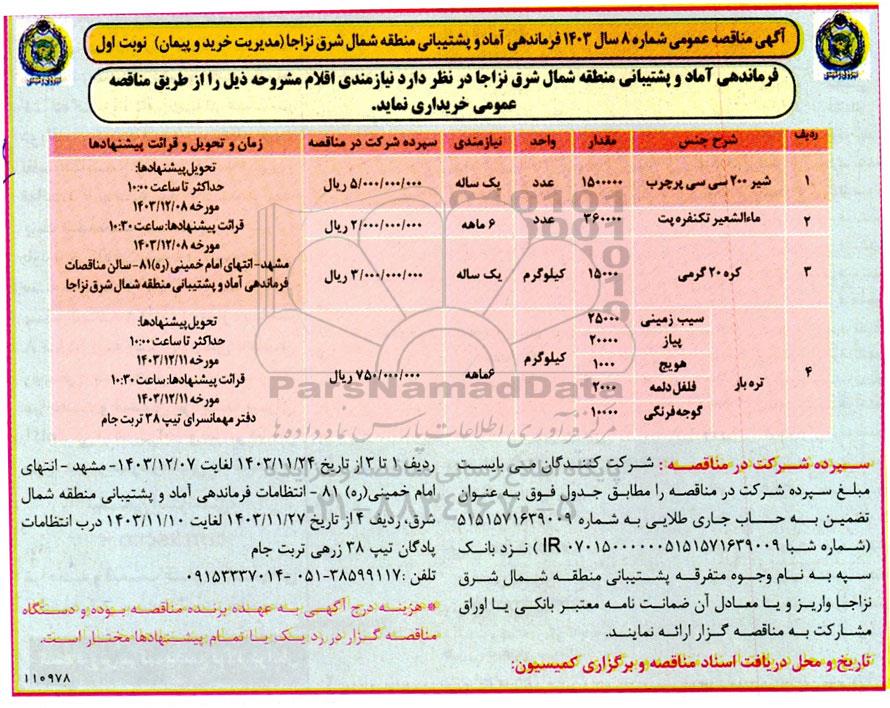 آگهی مناقصه عمومی شماره ۸ سال ۱۴۰۳ فرماندهی آماد و پشتیبانی منطقه شمال شرق نزاجا (مدیریت خرید و پیمان) نوبت اول
فرماندهی آماد و پشتیبانی منطقه شمال شرق نزاجا در نظر دارد نیازمندی اقلام مشروحه ذیل را از طریق مناقصه
عمومی خریداری نماید.
ردیف شرح جنس مقدار واحد نیازمندی سپرده شرکت در مناقصه زمان و تحویل و قرائت پیشنهادها
۱ شیر ۲۰۰ سی سی پرچرب ۱۵۰۰۰۰۰ عدد یک ساله ۵/۰۰۰/۰۰۰/۰۰۰ ریال
۲ ماءالشعیر تکنفره پت ۳۶۰۰۰۰ عدد ۶ ماهه ۲/۰۰۰/۰۰۰/۰۰۰ ریال
۳ کره ۲۰ گرمی ۱۵۰۰۰ کیلوگرم یک ساله ۳/۰۰۰/۰۰۰/۰۰۰ ریال
تحویل پیشنهادها:
حداکثر تا ساعت ۱۰:۰۰
مورخه ۱۴۰۳/۱۲/۰۸
قرائت پیشنهادها: ساعت ۱۰:۳۰
مورخه ۱۴۰۳/۱۲/۰۸
مشهد- انتهای امام خمینی (ره)۸۱- سالن مناقصات
فرماندهی آماد و پشتیبانی منطقه شمال شرق نزاجا
۴ تره بار
سیب زمینی ۲۵۰۰۰
پیاز ۲۰۰۰۰
هویج ۱۰۰۰
فلفل دلمه ۲۰۰۰
گوجه فرنگی ۱۰۰۰۰
کیلوگرم ۶ماهه ۷۵۰/۰۰۰/۰۰۰ ریال
تحویل پیشنهادها:
حداکثر تا ساعت ۱۰:۰۰
مورخه ۱۴۰۳/۱۲/۱۱
قرائت پیشنهادها: ساعت ۱۰:۳۰
مورخه ۱۴۰۳/۱۲/۱۱
دفتر مهمانسرای تیپ ۳۸ تربت جام
ParsNamadData
مرکز فرآوری اطلاعات پارس نماد داده ها
سپرده شرکت در مناقصه : شرکت کنندگان می بایست
مبلغ سپرده شرکت در مناقصه را مطابق جدول فوق به عنوان
تضمین به حساب جاری طلایی به شماره ۵۱۵۱۵۷۱۶۳۹۰۰۹
(شماره شبا IR ۰۷۰۱۵۰۰۰۰۰۰۰۵۱۵۱۵۷۱۶۳۹۰۰۹ ) نزد بانک
سپه به نام وجوه متفرقه پشتیبانی منطقه شمال شرق
نزاجا واریز و یا معادل آن ضمانت نامه معتبر بانکی یا اوراق
مشارکت به مناقصه گزار ارائه نمایند.
تاریخ و محل دریافت اسناد مناقصه و برگزاری کمیسیون:
ردیف ۱ تا ۳ از تاریخ ۱۴۰۳/۱۱/۲۴ لغایت ۱۴۰۳/۱۲/۰۷- مشهد - انتهای
امام خمینی(ره) ۸۱ - انتظامات فرماندهی آماد و پشتیبانی منطقه شمال
شرق، ردیف ۴ از تاریخ ۱۴۰۳/۱۱/۲۷ لغایت ۱۴۰۳/۱۱/۱۰ درب انتظامات
پادگان تیپ ۳۸ زرهی تربت جام
تلفن :۳۸۵۹۹۱۱۷-۰۵۱ -۰۹۱۵۳۳۳۷۰۱۴
* هزینه درج آگهی به عهده برنده مناقصه بوده و دستگاه
مناقصه گزار در رد یک یا تمام پیشنهادها مختار است.
۱۱۰۹۷۸